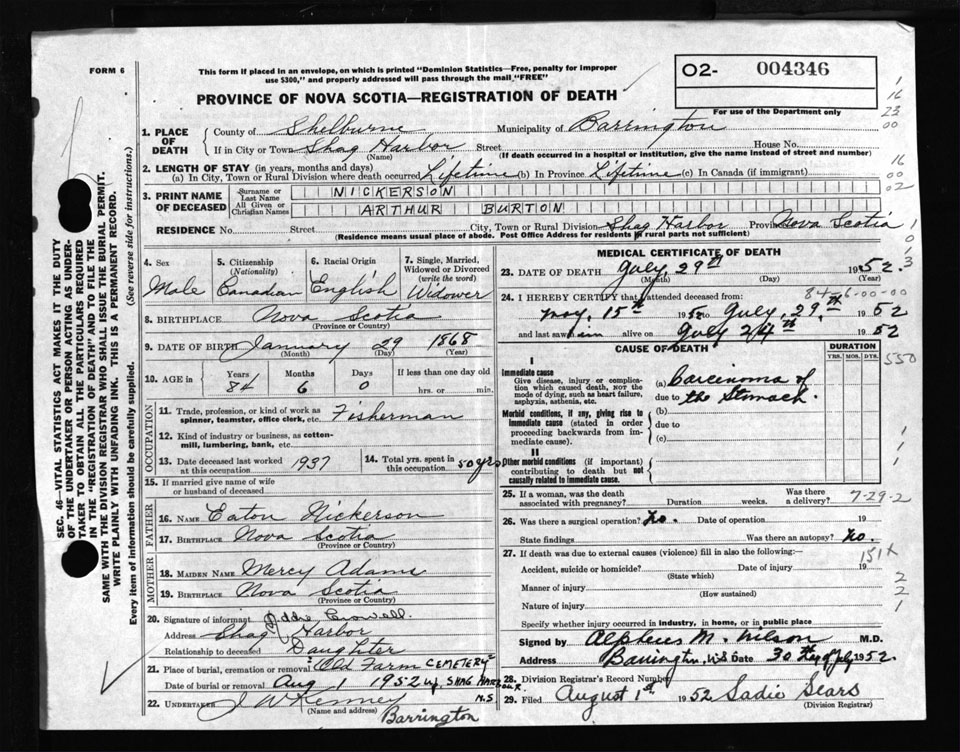 FORM 6
This form if placed in an envelope, on which is printed "Dominion Statistics—Free, penalty for improper
use $300," and properly addressed will pass through the mail "FREE"
O2- 004346
PROVINCE OF NOVA SCOTIA—REGISTRATION OF DEATH
For use of the Department only
1. PLACE OF DEATH
County of Shelburne Municipality of Barrington
If in City or Town Shag Harbor Street House No.
(Name) (If death occurred in a hospital or institution, give the name instead of street and number)
2. LENGTH OF STAY (in years, months and days)
(a) In City, Town or Rural Division where death occurred Lifetime (b) In Province Lifetime (c) In Canada (if immigrant)
3. PRINT NAME OF DECEASED
Surname or Last Name NICKERSON
All Given or Christian Names ARTHUR BURTON
RESIDENCE No. Street City, Town or Rural Division Shag Harbor Province Nova Scotia
(Residence means usual place of abode. Post Office Address for residents in rural parts not sufficient)
4. Sex
Male
5. Citizenship
(Nationality)
Canadian
6. Racial Origin
English
7. Single, Married, Widowed or Divorced
(write the word)
Widower
8. BIRTHPLACE Nova Scotia
(Province or Country)
9. DATE OF BIRTH January 29 1868
(Month) (Day) (Year)
10. AGE in Years Months Days If less than one day old
84 6 0 hrs. or min.
OCCUPATION
11. Trade, profession, or kind of work as
spinner, teamster, office clerk, etc. Fisherman
12. Kind of industry or business, as cotton-
mill, lumbering, bank, etc.
13. Date deceased last worked
at this occupation 1937
14. Total yrs. spent in
this occupation 50 yrs
15. If married give name of wife
or husband of deceased
FATHER
16. NAME Eaton Nickerson
17. BIRTHPLACE Nova Scotia
(Province or Country)
MOTHER
18. MAIDEN NAME Mercy Adams
19. BIRTHPLACE Nova Scotia
(Province or Country)
20. Signature of informant Addie Crowell.
Address Shag Harbor
Relationship to deceased Daughter
21. Place of burial, cremation or removal "Old Farm CEMETERY"
Date of burial or removal Aug 1 1952 SHAG HARBOUR.
N.S
22. UNDERTAKER J W Kenney
(Name and address)
Barrington
MEDICAL CERTIFICATE OF DEATH
23. DATE OF DEATH July, 29th 1952.
(Month) (Day) (Year)
84-6-00-00
24. I HEREBY CERTIFY that I attended deceased from:
May, 15th 1952 to July, 29th 1952
and last saw him alive on July 24th 1952
CAUSE OF DEATH
DURATION
YRS. MOS. DYS.
I
Immediate cause
Give disease, injury or complica-
tion which caused death, NOT the
mode of dying, such as heart failure,
asphyxia, asthenia, etc.
(a) Carcinoma of
due to the Stomach.
Morbid conditions, if any, giving rise to
immediate cause (stated in order
proceeding backwards from im-
mediate cause).
(b)
due to
(c)
II
Other morbid conditions (if important)
contributing to death but not
causally related to immediate cause.
25. If a woman, was the death
associated with pregnancy? Duration weeks. Was there a delivery?
7-29-2
26. Was there a surgical operation? No. Date of operation 19
State findings Was there an autopsy? No.
27. If death was due to external causes (violence) fill in also the following:—
151X
Accident, suicide or homicide? Date of injury 19
(State which)
Manner of injury
(How sustained)
Nature of injury
Specify whether injury occurred in industry, in home, or in public place
Signed by Alpheus M. Wilson M.D.
Address Barrington, N.S Date 30th Day of July 1952.
28. Division Registrar's Record Number
29. Filed August 1st 1952 Sadie Sears
(Division Registrar)
1
16
23
00
16
00
02
1
0
3
3
550
1
1
1
2
2
1
SEC. 46—VITAL STATISTICS ACT MAKES IT THE DUTY
OF THE UNDERTAKER OR PERSON ACTING AS UNDER-
TAKER TO OBTAIN ALL THE PARTICULARS REQUIRED
IN THE "REGISTRATION OF DEATH" AND TO FILE THE
SAME WITH THE DIVISION REGISTRAR WHO SHALL ISSUE THE BURIAL PERMIT.
WRITE PLAINLY WITH UNFADING INK. THIS IS A PERMANENT RECORD.
Every item of information should be carefully supplied. (See reverse side for instructions.)